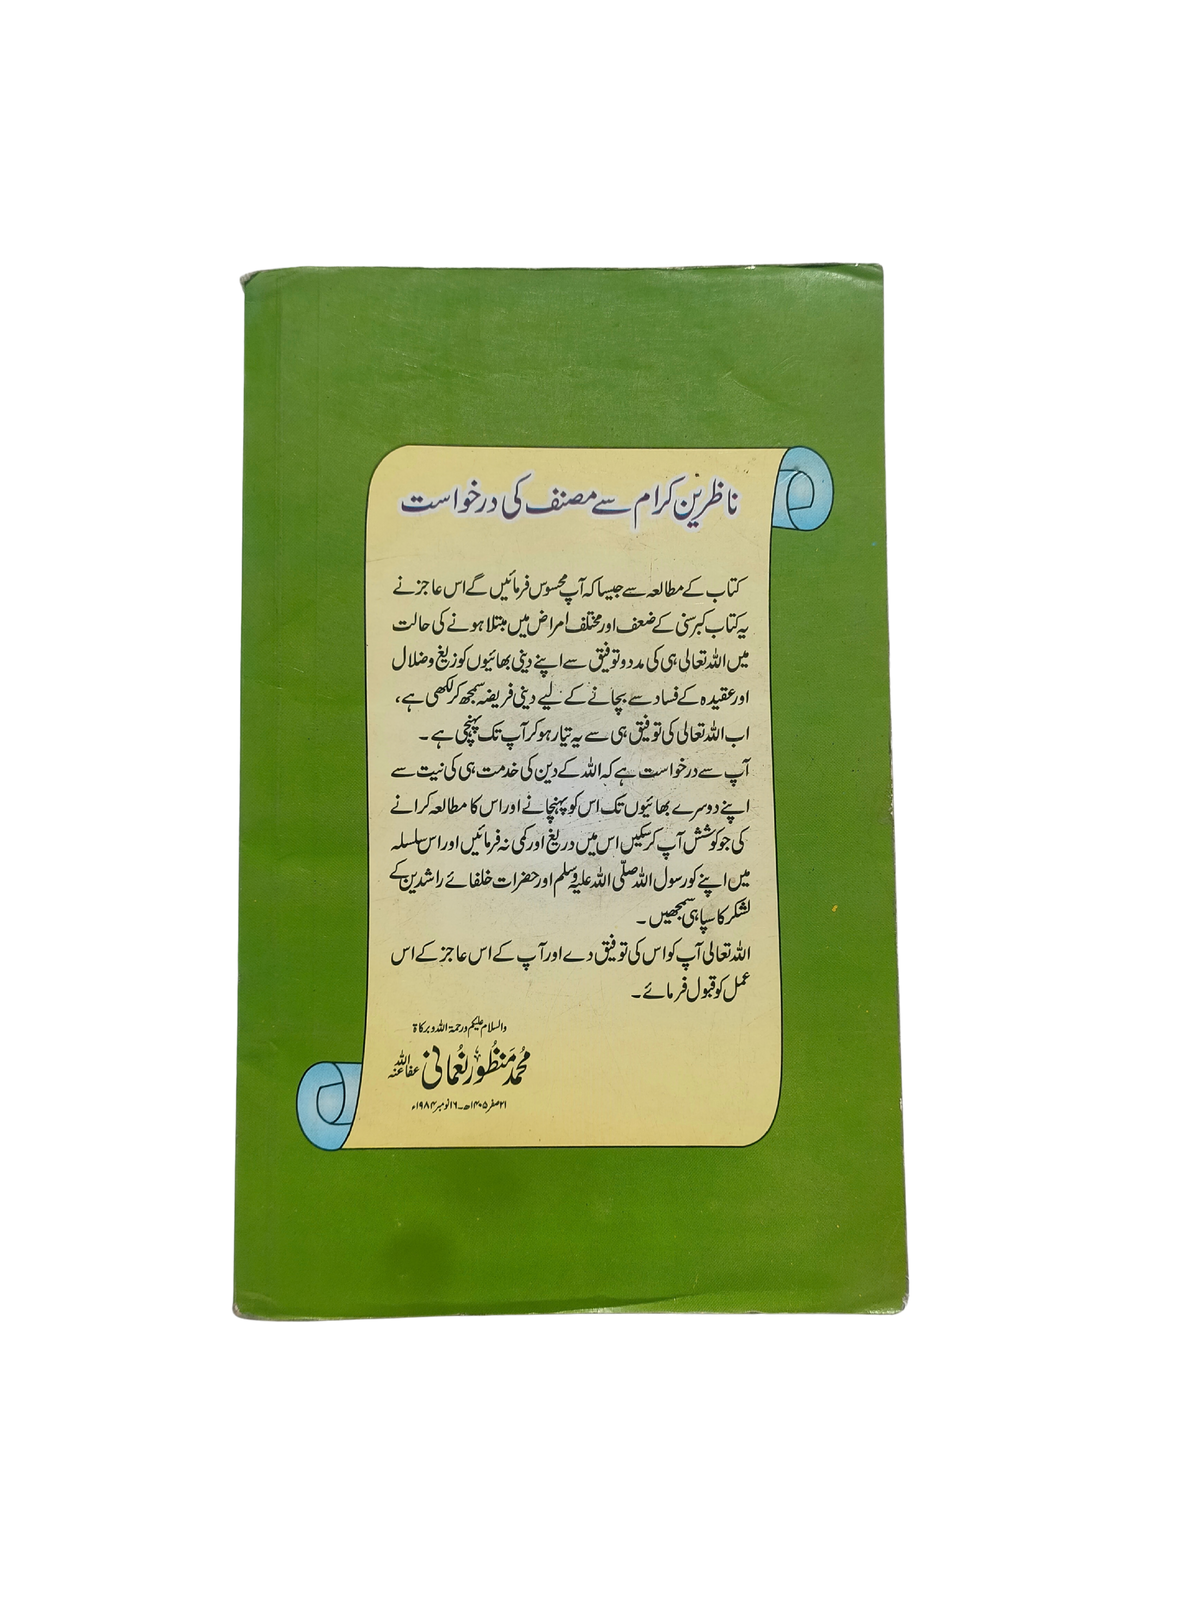 ناظرین کرام سے مصنف کی درخواست
کتاب کے مطالعہ سے جیسا کہ آپ محسوس فرمائیں گے اس عاجز نے
یہ کتاب کبر سنی کے ضعف اور مختلف امراض میں مبتلا ہونے کی حالت
میں اللہ تعالی ہی کی مدد و توفیق سے اپنے دینی بھائیوں کو زیغ و ضلال
اور عقیدہ کے فساد سے بچانے کے لیے دینی فریضہ سمجھ کر لکھی ہے،
اب اللہ تعالی کی توفیق ہی سے یہ تیار ہو کر آپ تک پہنچی ہے ۔
آپ سے درخواست ہے کہ اللہ کے دین کی خدمت ہی کی نیت سے
اپنے دوسرے بھائیوں تک اس کو پہنچانے اور اس کا مطالعہ کرانے
کی جو کوشش آپ کر سکیں اس میں دریغ اور کمی نہ فرمائیں اور اس سلسلہ
میں اپنے کو رسول اللہ صلّی اللہ علیہ وسلم اور حضرات خلفائے راشدین کے
لشکر کا سپاہی سمجھیں ۔
اللہ تعالی آپ کو اس کی توفیق دے اور آپ کے اس عاجز کے اس
عمل کو قبول فرمائے ۔
والسلام علیکم ورحمۃ اللہ وبرکاۃ
مُحمّد مَنظُور نُعمَانی عفا اللہ عنہ
۲۱ صفر ۱۴۰۵ھ ۔ ۱۶ نومبر ۱۹۸۴ء